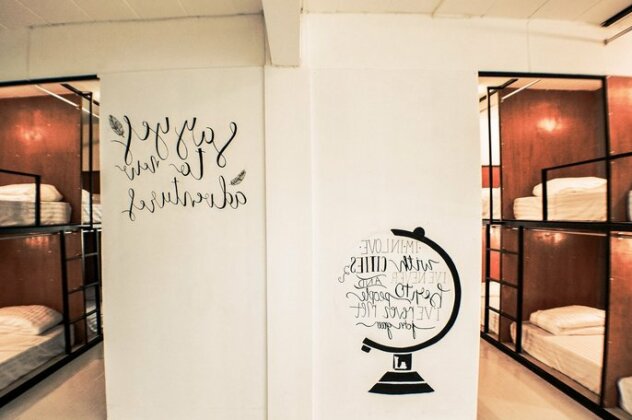 say yes
to new
adventures
I'M IN LOVE
with CITIES
I'VE NEVER
been TO AND
people
I'VE never MET
john green